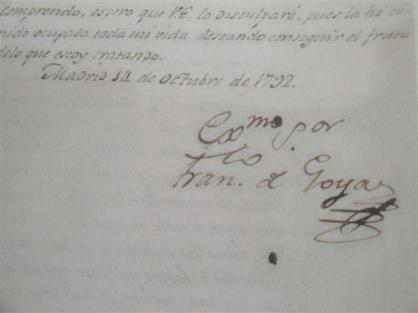 comprendo, espero que V.E. la disculpará, pues la hé te
nido ocupada toda mi vida deseando conseguir el fruto
de lo que estoy tratando.
Madrid 14 de octubre de 1792.
Exmo Sor
Franco de Goya